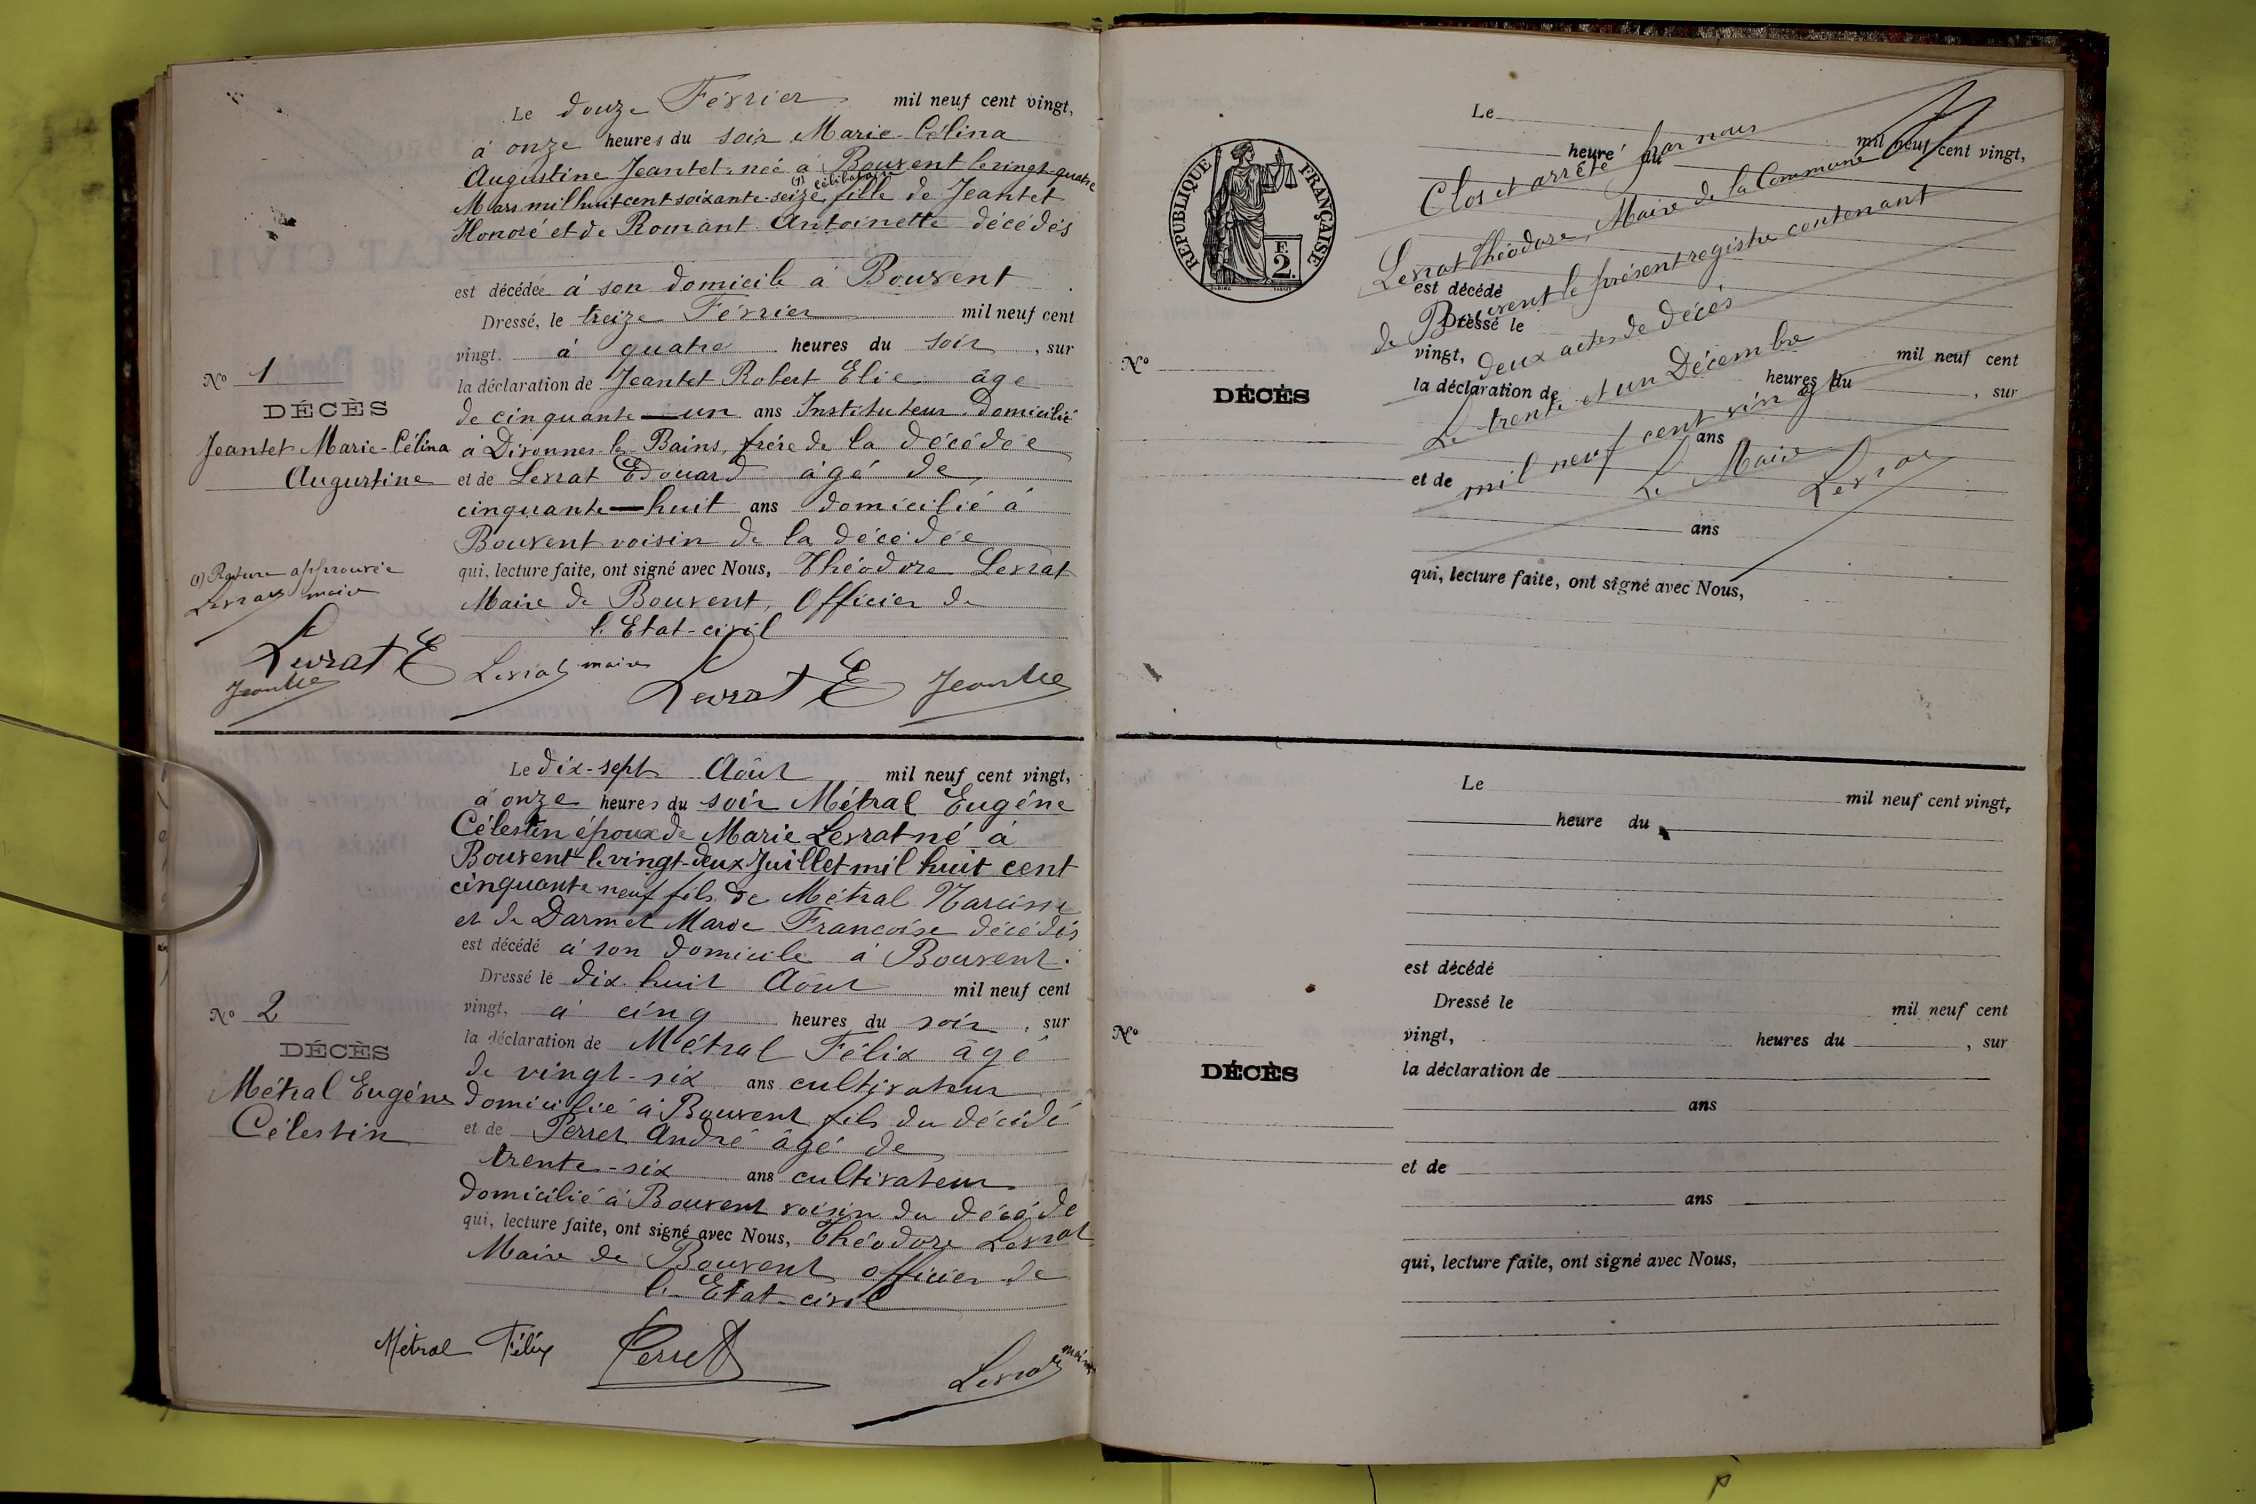 Le douze Février mil neuf cent vingt,
à onze heures du soir Marie-Célina
Augustine Jeantet née à Bouvent le vingt quatre
(1) célibataire
Mars mil huit cent soixante-seize, fille de Jeantet
Honoré et de Romant Antoinette décédés
est décédée à son domicile à Bouvent
Dressé, le treize Février mil neuf cent
vingt, à quatre heures du soir, sur
No 1
la déclaration de Jeantet Robert Elie âgé
DÉCÈS
de cinquante un ans Instituteur domicilié
Jeantet Marie-Célina
à Divonne-les-Bains, frère de la décédée
Augustine
et de Levrat Edouard âgé de
cinquante huit ans domicilié à
Bouvent voisin de la décédée
(1) Rature approuvée
qui, lecture faite, ont signé avec Nous, Théodore Levrat
Levrat maire
Maire de Bouvent, Officier de
l'Etat-civil
Levrat E
Levrat maire
Levrat E
Le dix-sept Août mil neuf cent vingt,
à onze heures du soir Métral Eugène
Célestin époux de Marie Levrat né à
Bouvent le vingt-deux Juillet mil huit cent
cinquante neuf fils de Métral Narcisse
et de Darmet Marie Françoise décédés
est décédé à son domicile à Bouvent.
Dressé le dix huit Août mil neuf cent
No 2
vingt, à cinq heures du soir, sur
DÉCÈS
la déclaration de Métral Félix âgé
de vingt-six ans cultivateur
Métral Eugène
domicilié à Bouvent fils du décédé
Célestin
et de Perret André âgé de
trente-six ans cultivateur
domicilié à Bouvent voisin du décédé
qui, lecture faite, ont signé avec Nous, Théodore Levrat
Maire de Bouvent officier de
l'Etat-civil
Métral Félix
Perret
Levrat maire
RÉPUBLIQUE FRANÇAISE
E.
2.
Le
mil neuf cent vingt,
heure du
Clos et arrêté par nous
Levrat Théodore, Maire de la Commune
de Bouvent le présent registre contenant
deux actes de décès
Le trente et un Décembre
mil neuf cent vingt
Le Maire
Levrat
est décédé
Dressé le
mil neuf cent
vingt,
heures du , sur
No
la déclaration de
DÉCÈS
ans
et de
ans
qui, lecture faite, ont signé avec Nous,
Le
mil neuf cent vingt,
heure du
est décédé
Dressé le
mil neuf cent
No
vingt,
heures du , sur
DÉCÈS
la déclaration de
ans
et de
ans
qui, lecture faite, ont signé avec Nous,